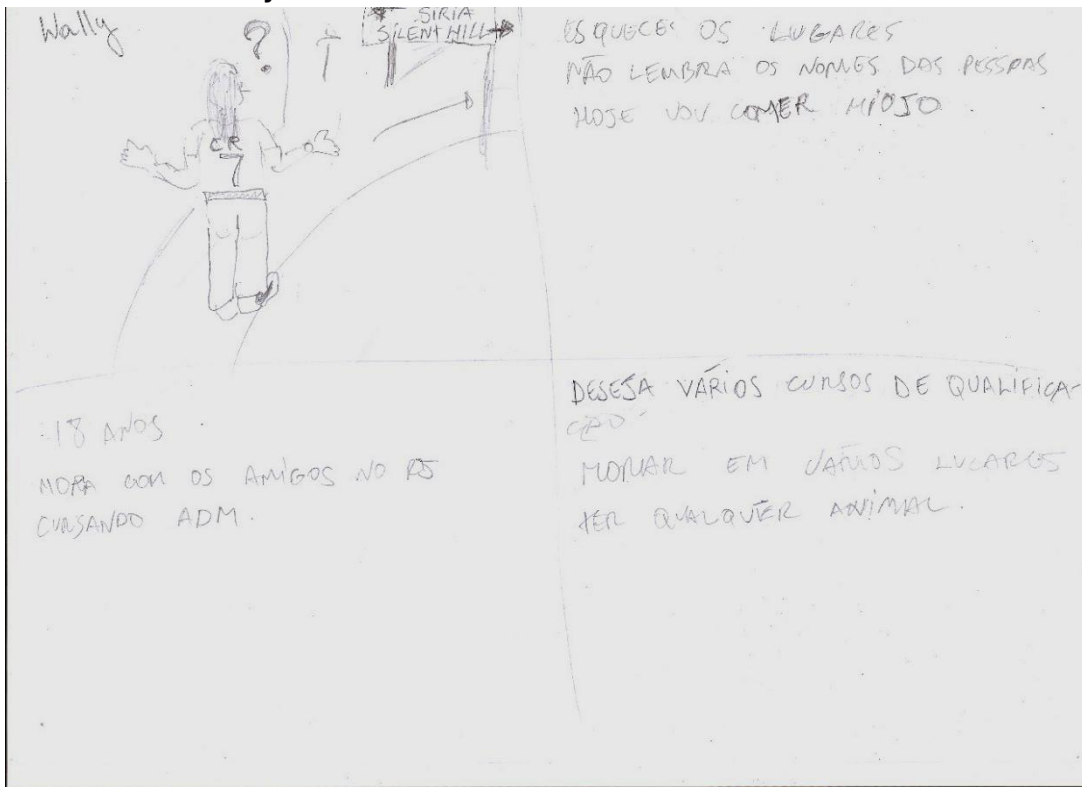 Wally
?
SIRIA
SILENT HILL
CR
7
ESQUECE OS LUGARES
NÃO LEMBRA OS NOMES DAS PESSOAS
HOJE VOU COMER MIOJO.
:18 ANOS.
MORA COM OS AMIGOS NO RJ
CURSANDO ADM.
DESEJA VÁRIOS CURSOS DE QUALIFICA-
ÇÃO
MORAR EM VÁRIOS LUGARES
TER QUALQUER ANIMAL.